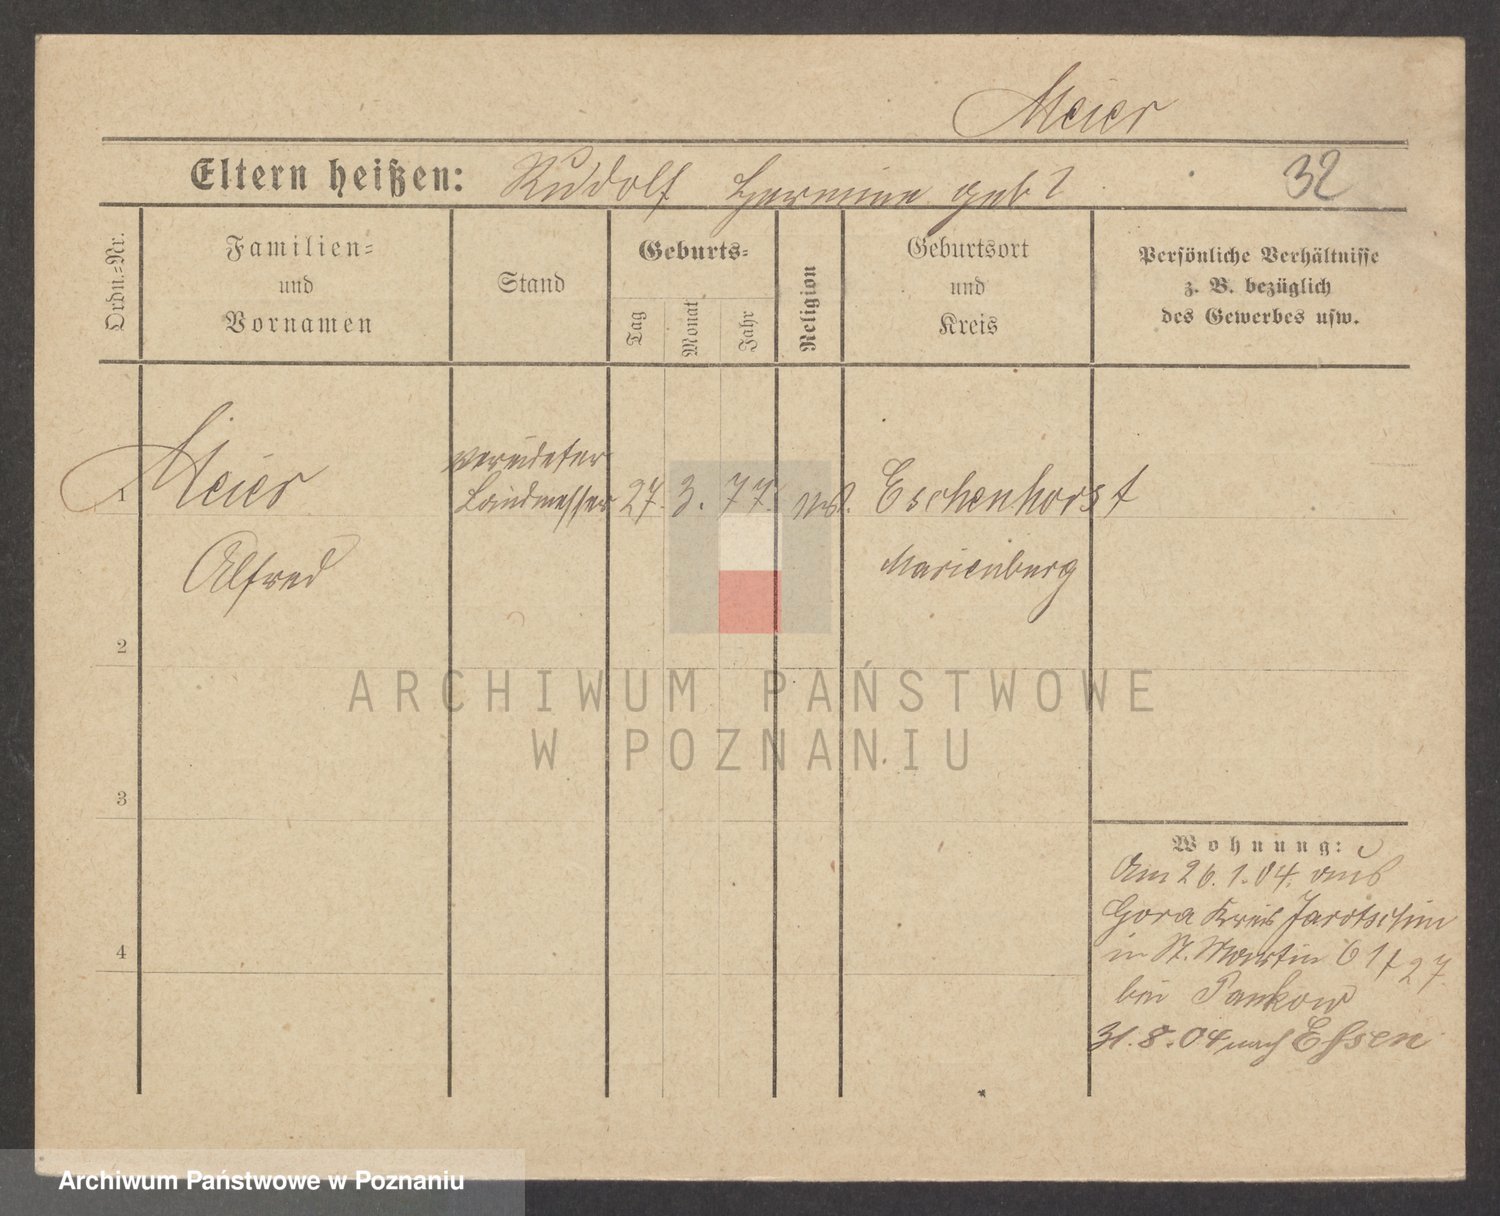 Meier
Eltern heißen: Rudolf Hermine geb ?
32
Ordn.=Nr.
Familien=
und
Vornamen
Stand
Geburts=
Tag
Monat
Jahr
Religion
Geburtsort
und
Kreis
Persönliche Verhältnisse
z. B. bezüglich
des Gewerbes usw.
1
Meier
Alfred
vereideter
Landmesser
27. 3. 77.
Eschenhorst
Marienburg
2
3
4
Wohnung:
Am 26.1.04. aus
Gora Kreis Jarotschin
in St. Martin 61 27.
bei Pankow
31.8.04 nach Essen
ARCHIWUM PAŃSTWOWE
W POZNANIU
Archiwum Państwowe w Poznaniu